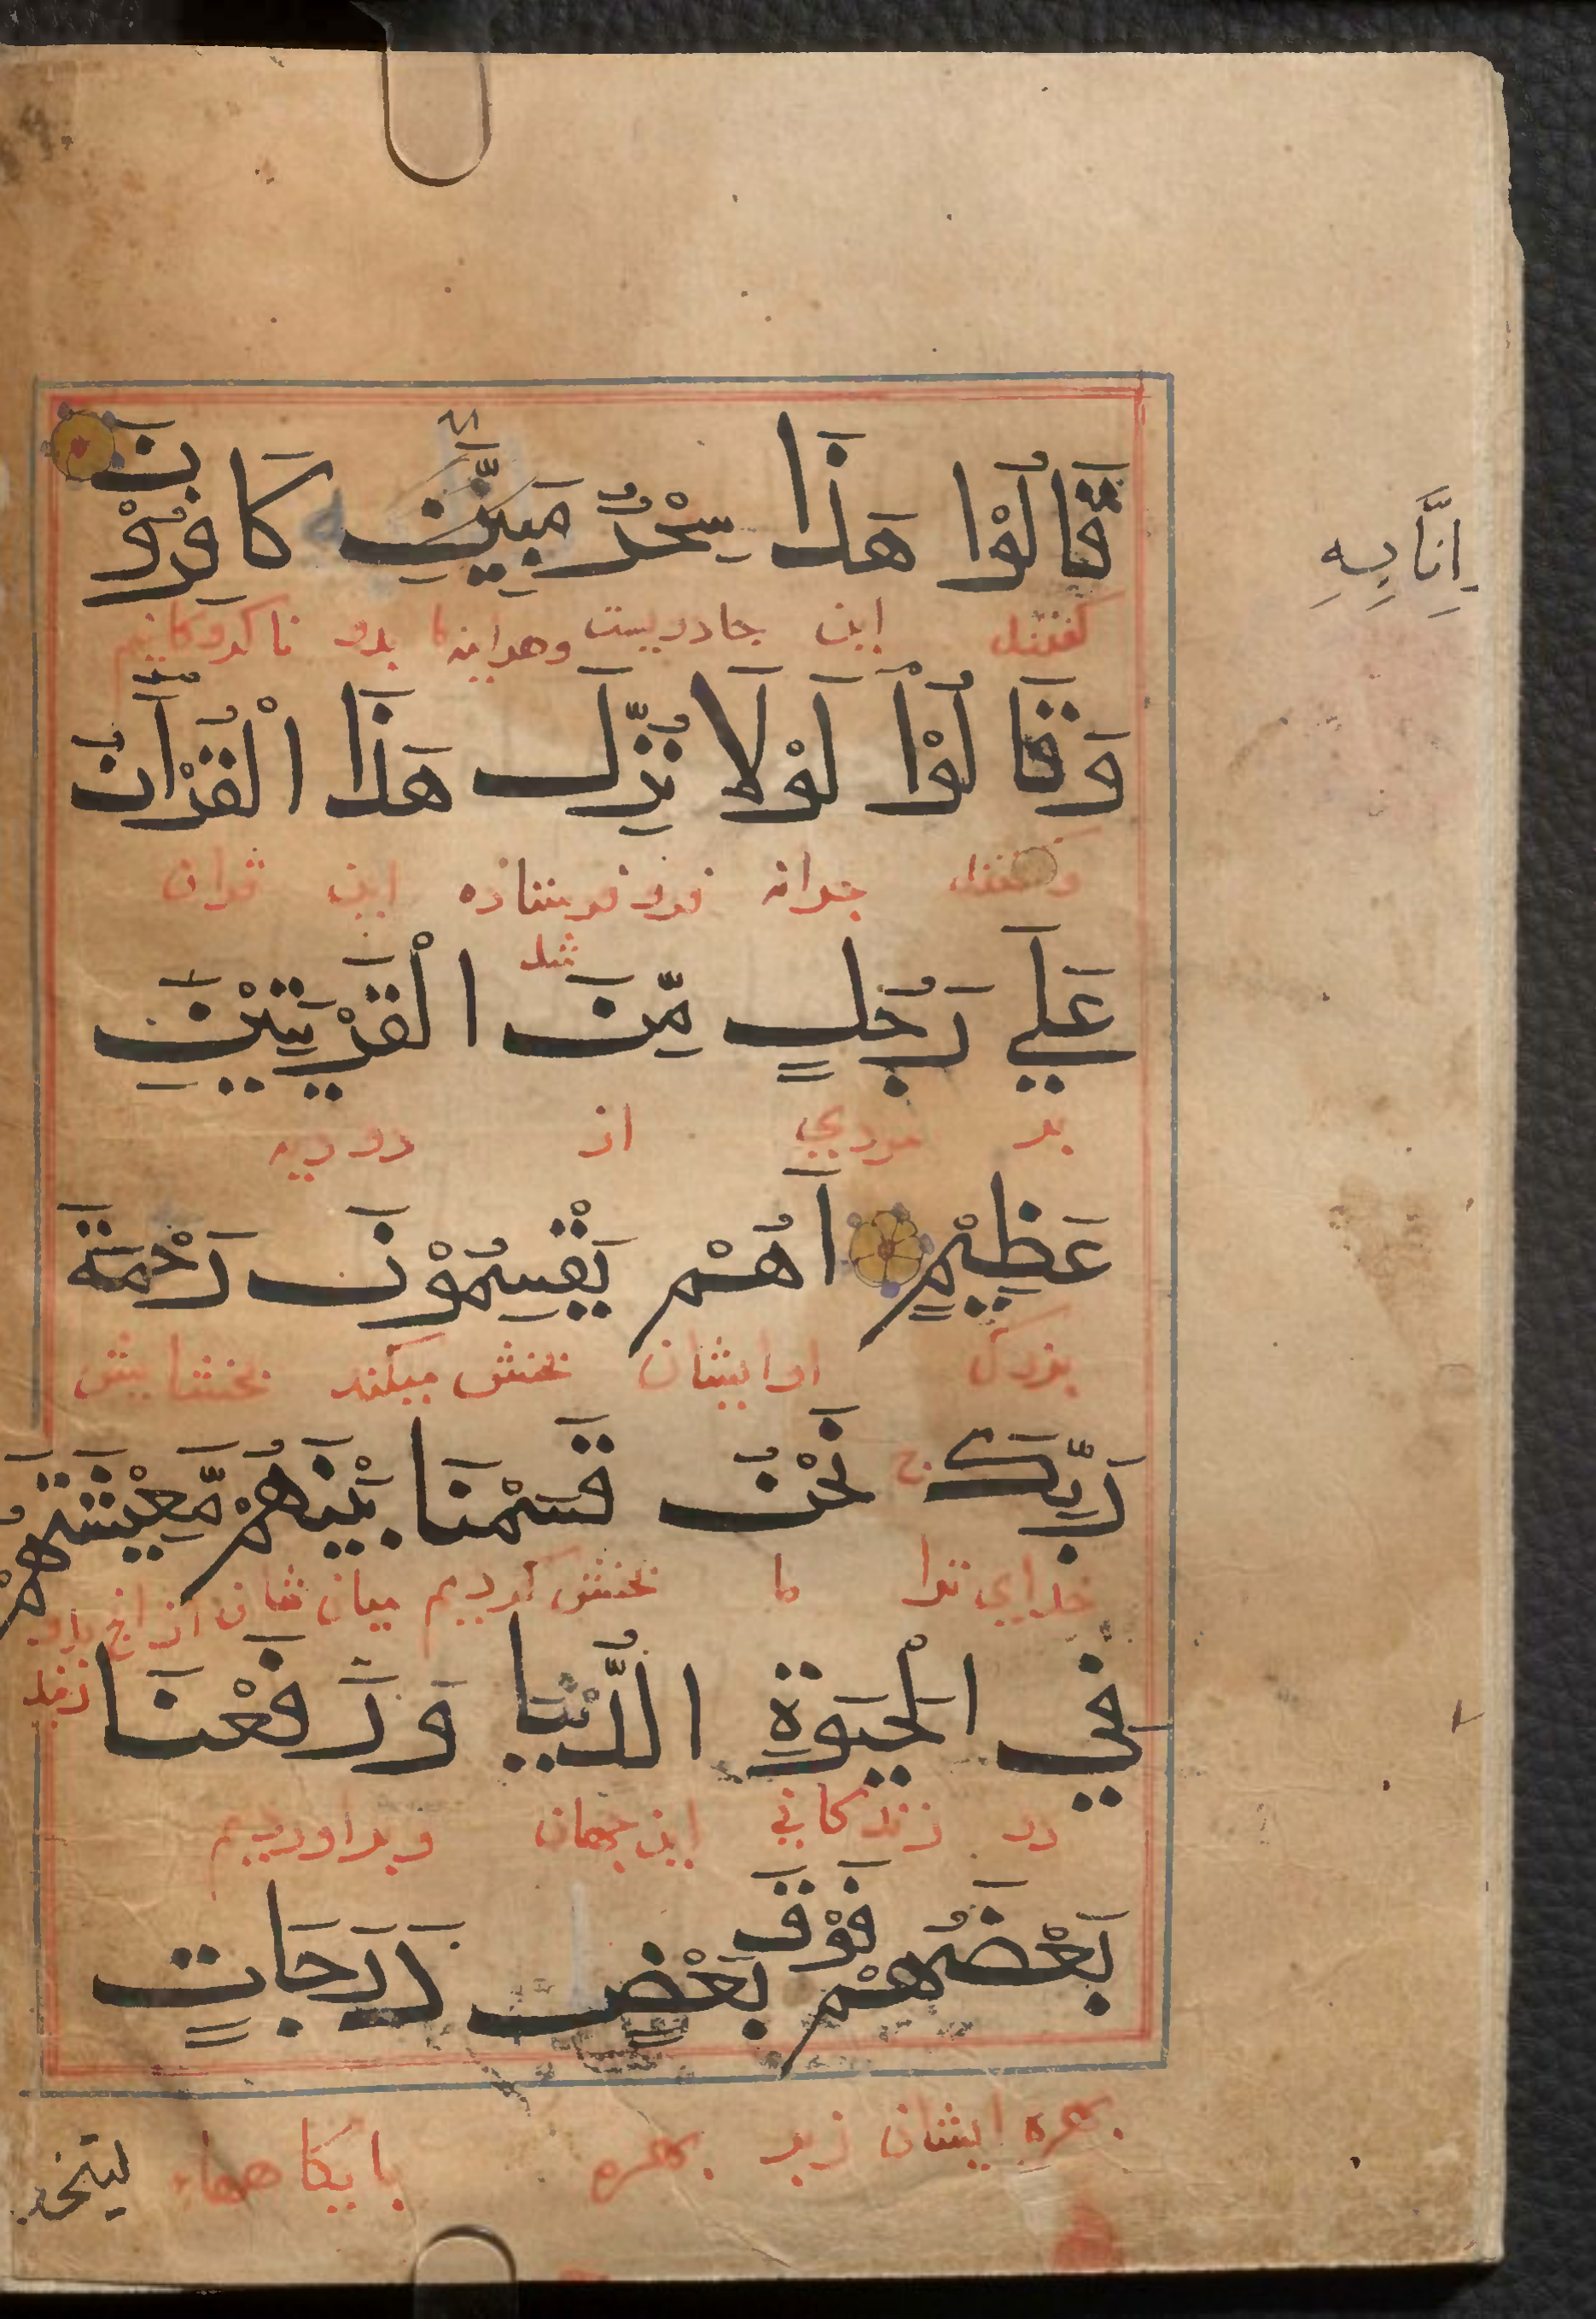 قَالُوْا هَذَا سِحْرٌ مُبِيْنٌ كَافِرُوْنَ
اِنَّا بِهِ
گفتند این جادوییست وهراینه ما بدو ناکروکانیم
وَقَالُوْا لَوْلَا نُزِّلَ هَذَا الْقُرْآنُ
وگفتند چرانه فروفرستاذه این قران
شد
عَلَي رَجُلٍ مِّنَ الْقَرْيَتَيْنِ
بر مردي از دو دیه
عَظِيْمٍ اَهُمْ يَقْسِمُوْنَ رَحْمَةَ
بزرک اوایشان بخش میکنند بخشایش
رَبِّكَ ج نَحْنُ قَسَمْنَا بَيْنَهُمْ مَّعِيْشَتَهُمْ
خدای ترا ما بخش کردیم میان شان از انچ بدو
زیند
فِي الْحَيَوةِ الدُّنْيَا وَرَفَعْنَا
در زندکانی این جهان وبراوردیم
بَعْضَهُمْ فَوْقَ بَعْضٍ دَرَجَاتٍ
بهره ایشان زبر بهره بایکاهها
ليتخذ